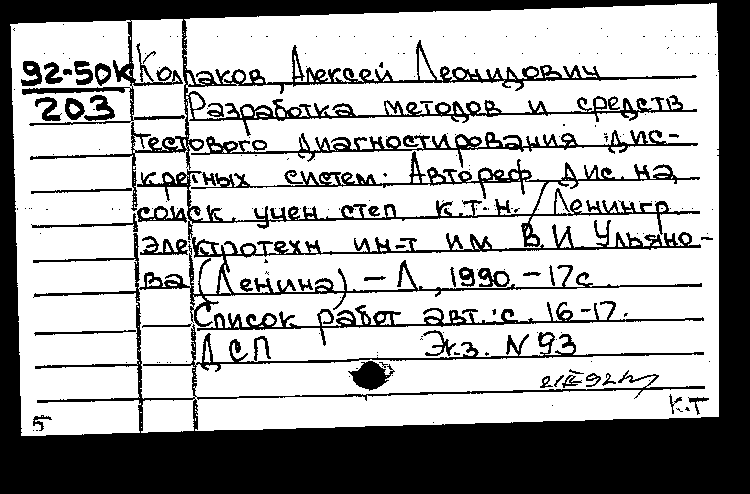 92-50к Колпаков, Алексей Леонидович
203 Разработка методов и средств
тестового диагностирования дис-
кретных систем: Автореф. дис. на
соиск. учен. степ. к.т.н. / Ленингр.
электротехн. ин-т им. В.И. Ульяно-
ва (Ленина). – Л., 1990. – 17с.
Список работ авт.: с. 16-17.
ДСП Экз. N 93
5 К.Т